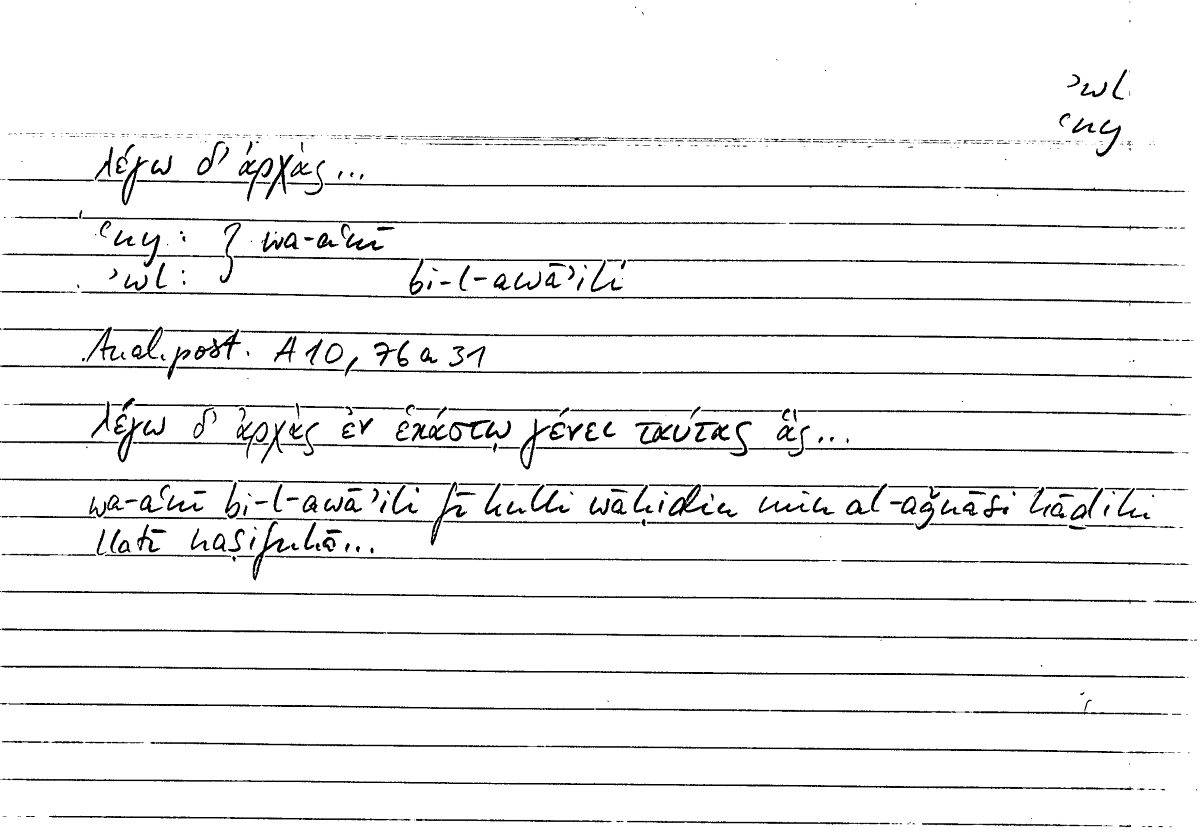 ʾwl
ʿny
λέγω δ’ ἀρχὰς...
ʿny : } wa-aʿnī
ʾwl : bi-l-awāʾili
Anal. post. A 10, 76 a 31
λέγω δ’ ἀρχὰς ἐν ἑκάστῳ γένει ταύτας ἃς...
wa-aʿnī bi-l-awāʾili fī kulli wāḥidin min al-aǧnāsi hāḏihi
llatī naṣifuhā...